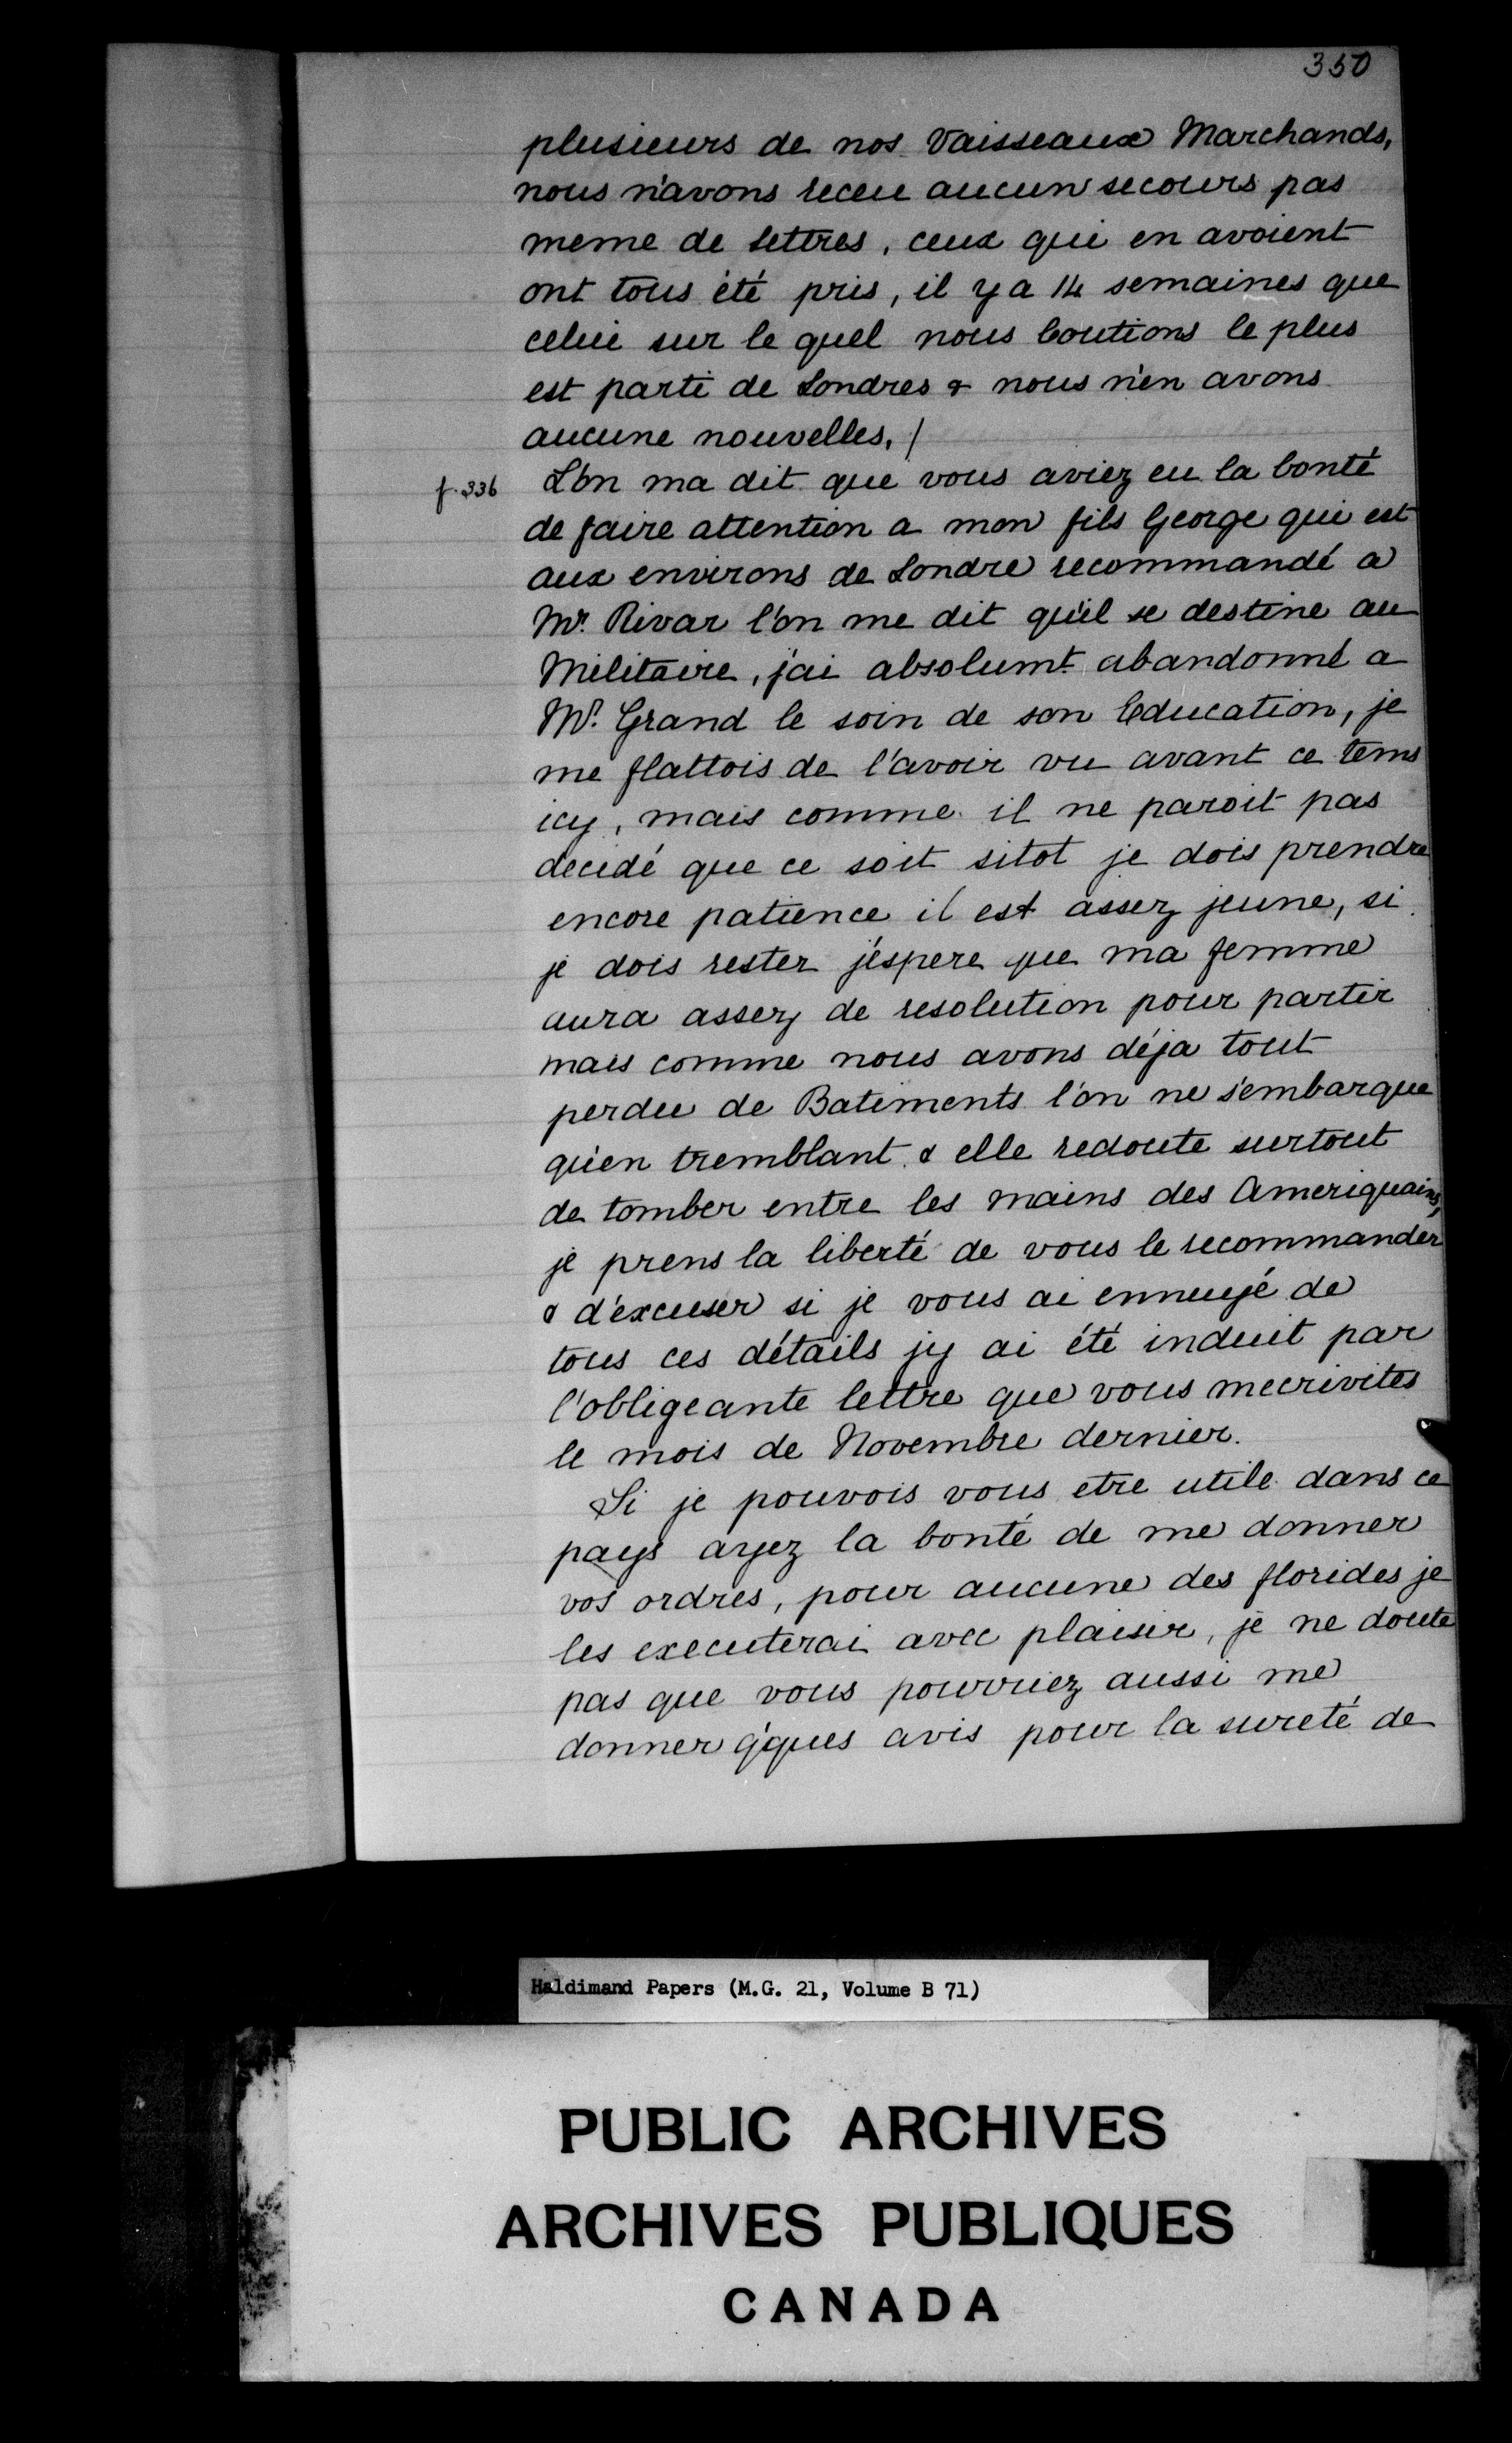 350
plusieurs de nos Vaisseaux Marchands,
nous n'avons receu aucun secours pas
meme de lettres, ceux qui en avoient
ont tous été pris, il y a 14 semaines que
celui sur le quel nous Coutions le plus
est parti de Londres & nous n'en avons
aucune nouvelles. /
f. 336 L'on ma dit que vous aviez eu la bonté
de faire attention a mon fils George qui est
aux environs de Londre recommandé a
Mr. Rivar l'on me dit qu'il se destine au
Militaire, j'ai absolumt. abandonné a
Mr. Grand le soin de son Education, je
me flattois de l'avoir vu avant ce tems
icy, mais comme il ne paroit pas
decidé que ce soit sitot je dois prendre
encore patience il est assez jeune, si
je dois rester j'espere que ma femme
aura assez de resolution pour partir
mais comme nous avons déja tout
perdu de Batiments l'on ne s'embarque
qu'en tremblant & elle redoute surtout
de tomber entre les mains des Ameriquains,
je prens la liberté de vous le recommander
& d'excuser si je vous ai ennuyé de
tous ces détails jy ai été induit par
l'obligeante lettre que vous mecrivites
le mois de Novembre dernier.
Si je pouvois vous etre utile dans ce
pays ayez la bonté de me donner
vos ordres, pour aucune des florides je
les executerai avec plaisir, je ne doute
pas que vous pourriez aussi me
donner q'ques avis pour la sureté de
Haldimand Papers (M.G. 21, Volume B 71)
PUBLIC ARCHIVES
ARCHIVES PUBLIQUES
CANADA